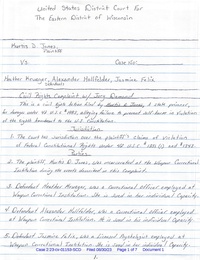 United States District Court for
The Eastern District of Wisconsin
Martes D. Jones,
Plaintiff
Vs. Case No:
Heather Krueger, Alexander Hollfelder, Jasmine Felix
defendants
Civil Rights Complaint w/ Jury Demand
This is a civil rights action filed by Martes D. Jones, a state prisoner,
for damages under 42 U.S.C. § 1983, alleging failure to prevent self-harm in violation
of the Eighth Amendment to the U.S. Constitution.
Jurisdiction
1. The Court has jurisdiction over the plaintiff's claims of violation
of Federal Constitutional Rights under 42 U.S.C. § 1331 (1) and § 1343.
Parties
2. The plaintiff, Martes D. Jones, was incarcerated at the Waupun Correctional
Institution during the events described in this Complaint.
3. Defendant Heather Krueger, was a Correctional officer employed at
Waupun Correctional Institution. She is sued in her individual Capacity.
4. Defendant Alexander Hollfelder, was a Correctional officer employed
at Waupun Correctional Institution. He is sued in his individual Capacity.
5. Defendant Jasmine Felix, was a licensed Psychologist employed at
Waupun Correctional Institution. She is sued in her individual Capacity.
Page 1 of 7 Document 1
1.